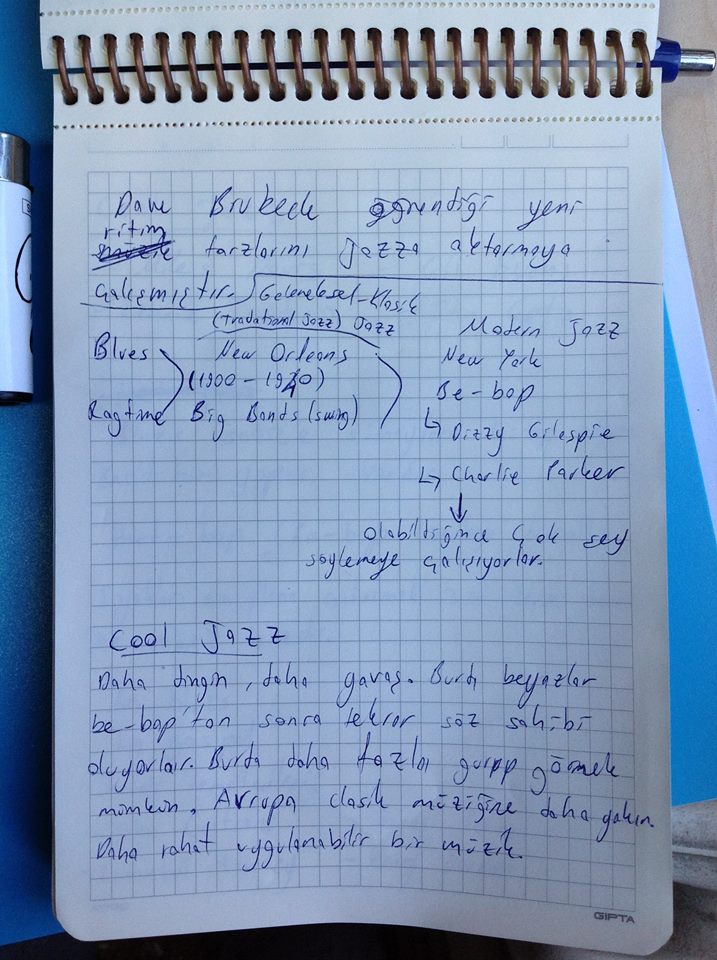 Dave Brubeck öğrendiği yeni
ritim
müzik tarzlarını jazza aktarmaya
çalışmıştır.
Geleneksel-Klasik
(Tradational Jazz) Jazz
Blues
New Orleans
(1900 - 1940)
Ragtime
Big Bands (swing)
Modern Jazz
New York
Be-bop
↳ Dizzy Gilespie
↳ Charlie Parker
↓
olabildiğince çok şey
söylemeye çalışıyorlar.
Cool Jazz
Daha dingin, daha yavaş. Burda beyazlar
be-bop'tan sonra tekrar söz sahibi
oluyorlar. Burda daha fazla gurpp görmek
mümkün. Avrupa clasik müziğine daha yakın.
Daha rahat uygulanabilir bir müzik.
GIPTA